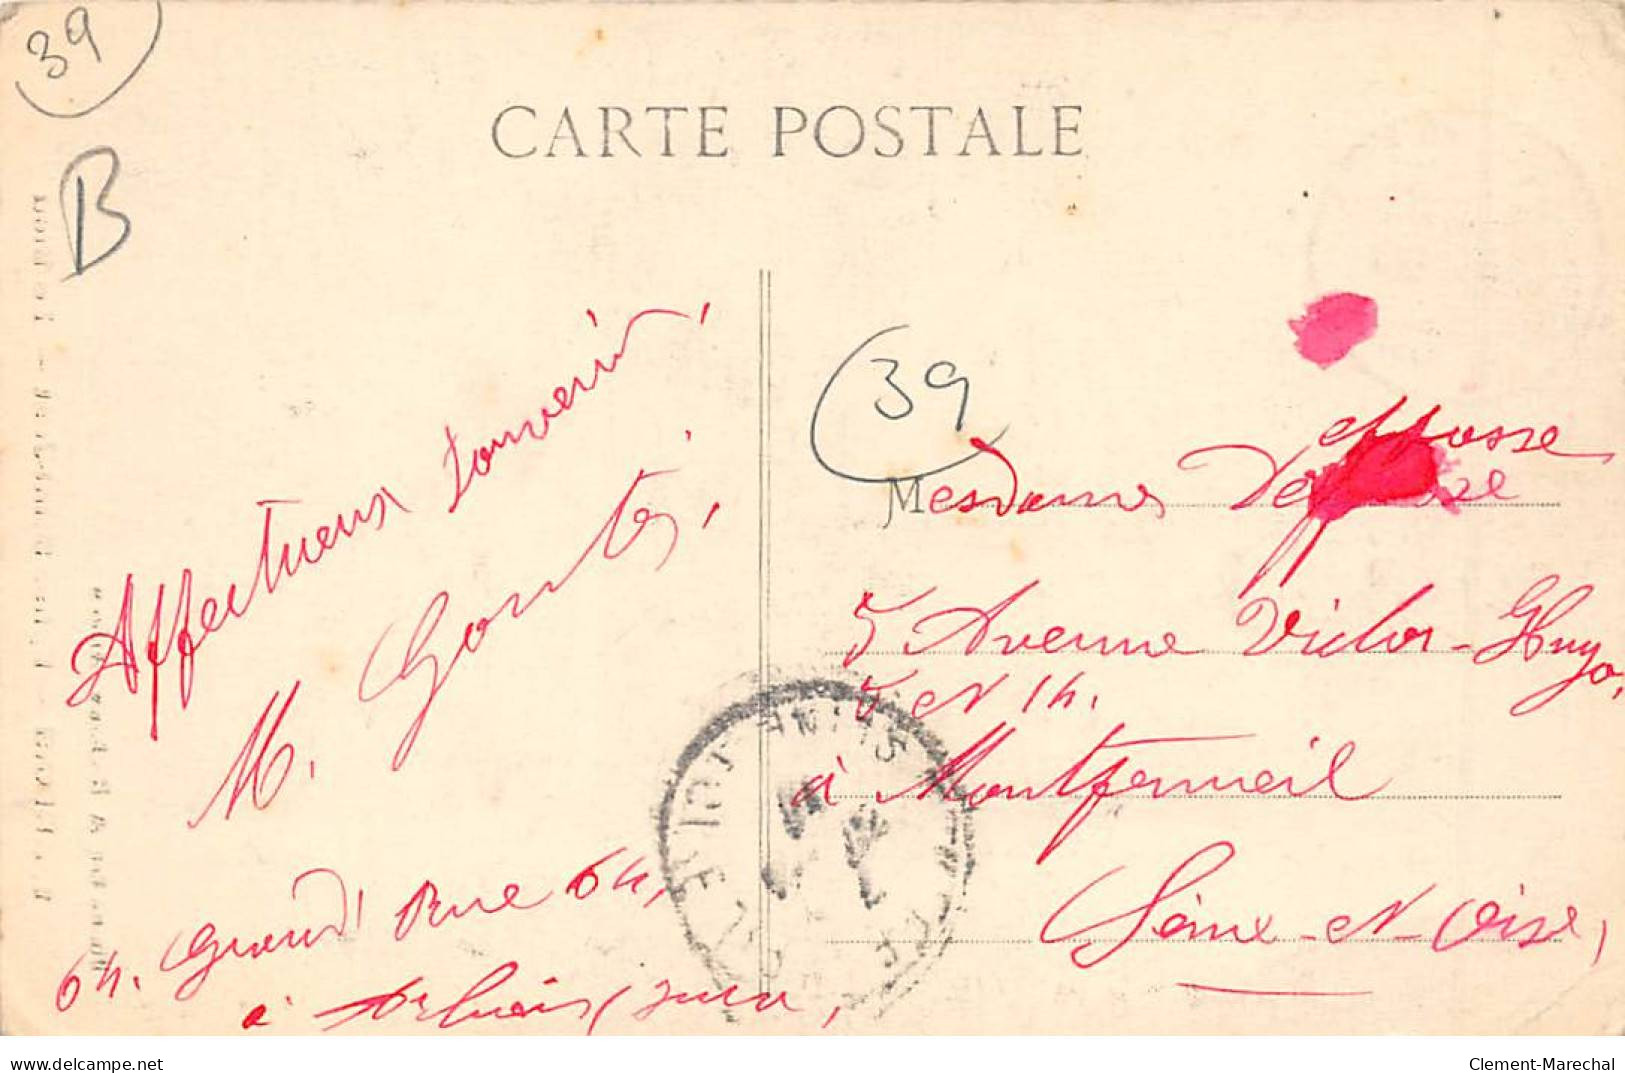 39
B
CARTE POSTALE
Affectueux souvenir,
M.
64. Grand' Rue 64,
à Arbois (Jura,
39
Mesdames Deffosse
5 Avenue Victor-Hugo,
à Montfermeil
Seine-et-Oise,
delcampe.net
Clement-Marechal